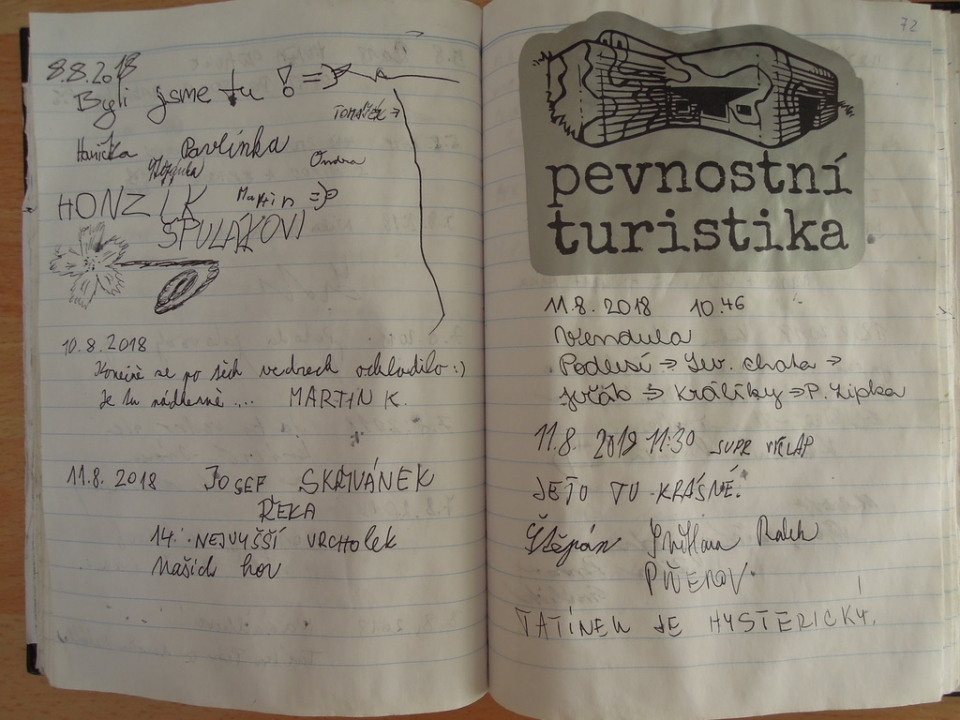 8.8.2018
Byli jsme tu !
TOMÁŠEK →
Hanička Pavlínka
Ondra
HONZÍK Martin
ŠPULÁKOVI
10.8.2018
Konečně se po těch vedrech ochladilo :)
Je tu nádherně ... MARTIN K.
11.8. 2018 JOSEF SKŘIVÁNEK
ŘEKA
14. NEJVYŠŠÍ VRCHOLEK
Našich hor
72
pevnostní
turistika
11.8. 2018 10.46
Vendula
Podlesí → Jeř. chata →
Jeřáb → Králíky → P. Lipka
11.8. 2018 11:30 SUPR VÝŠLAP
JETO TU KRÁSNÉ.
Štěpán Radek
TATÍNEK JE HYSTERICKÝ!